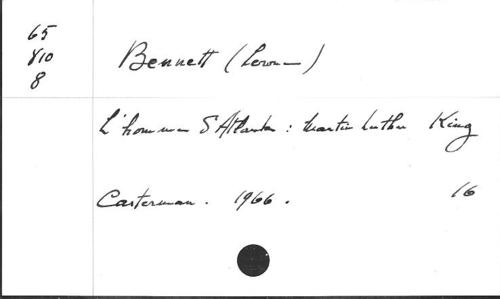 65
810
8
Bennett (Lerone)
L'homme d'Atlanta : Martin Luther King
Casterman . 1966 .
16